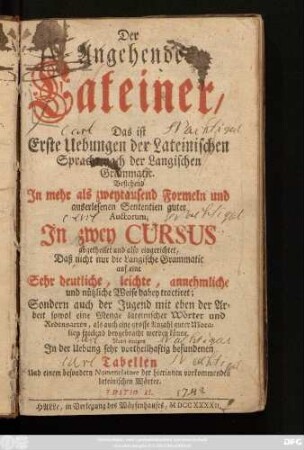 Der
Angehende
Lateiner,
Das ist
Erste Uebungen der Lateinischen
Sprache nach der Langischen
Grammatic.
Bestehend
In mehr als zweytausend Formeln und
auserlesenen Sententien guter
Auctorum,
In zwey CURSUS
abgetheilet und also eingerichtet,
Daß nicht nur die Langische Grammatic
auf eine
Sehr deutliche, leichte, annehmliche
und nützliche Weise dabey tractiret;
Sondern auch der Jugend mit eben der Ar-
beit sowol eine Menge lateinischer Wörter und
Redensarten, als auch eine grosse Anzahl guter Mora-
lien spielend beygebracht werden könne.
Nebst einigen
In der Uebung sehr vortheilhaftig befundenen
Tabellen
Und einem besondern Nomenclator der hierinnen vorkommenden
lateinischen Wörter.
EDITIO II.
HALLE, in Verlegung des Wäysenhauses, MDCCXXXXII.